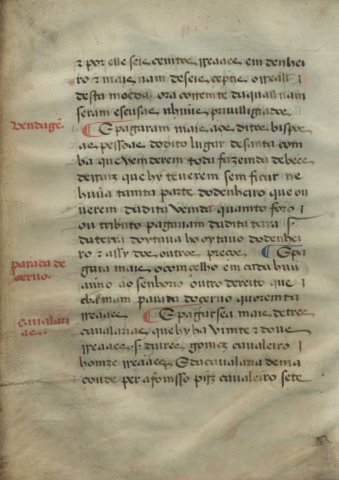 z por elle seis centos rreaaes em dinhei
ro z mais nam de seis ceptis o rreall
desta moeda ora corrente da quall nam
seram escusas nhuus priuilligiados
vendagẽ
¶ E pagaram mais aos ditos bispos
as pessoas do dito lugar de santa com
ba que venderem toda fazenda de bees
de rraiz que hy teuerem sem ficar ne
huũa tanta parte do dinheiro que ou
uerem da dita venda quanto foro
ou tributo pagauam da dita terra s.
da terra doytaua ho oytauo do dinhei
ro z assy dos outros preços ¶ E pa
parada de seruo
gara mais o comcelho em cada huũ
anno ao senhorio outro dereito que
chamam parada do seruo quorenta
rreaaes ¶ E pagarsea mais de tres
caualarias
caualarias que hy ha vinte z dous
rreaaes s. diures gomez caualeiro
homze rreaaes E da caualaria de ma
conde per afomsso piz caualeiro sete